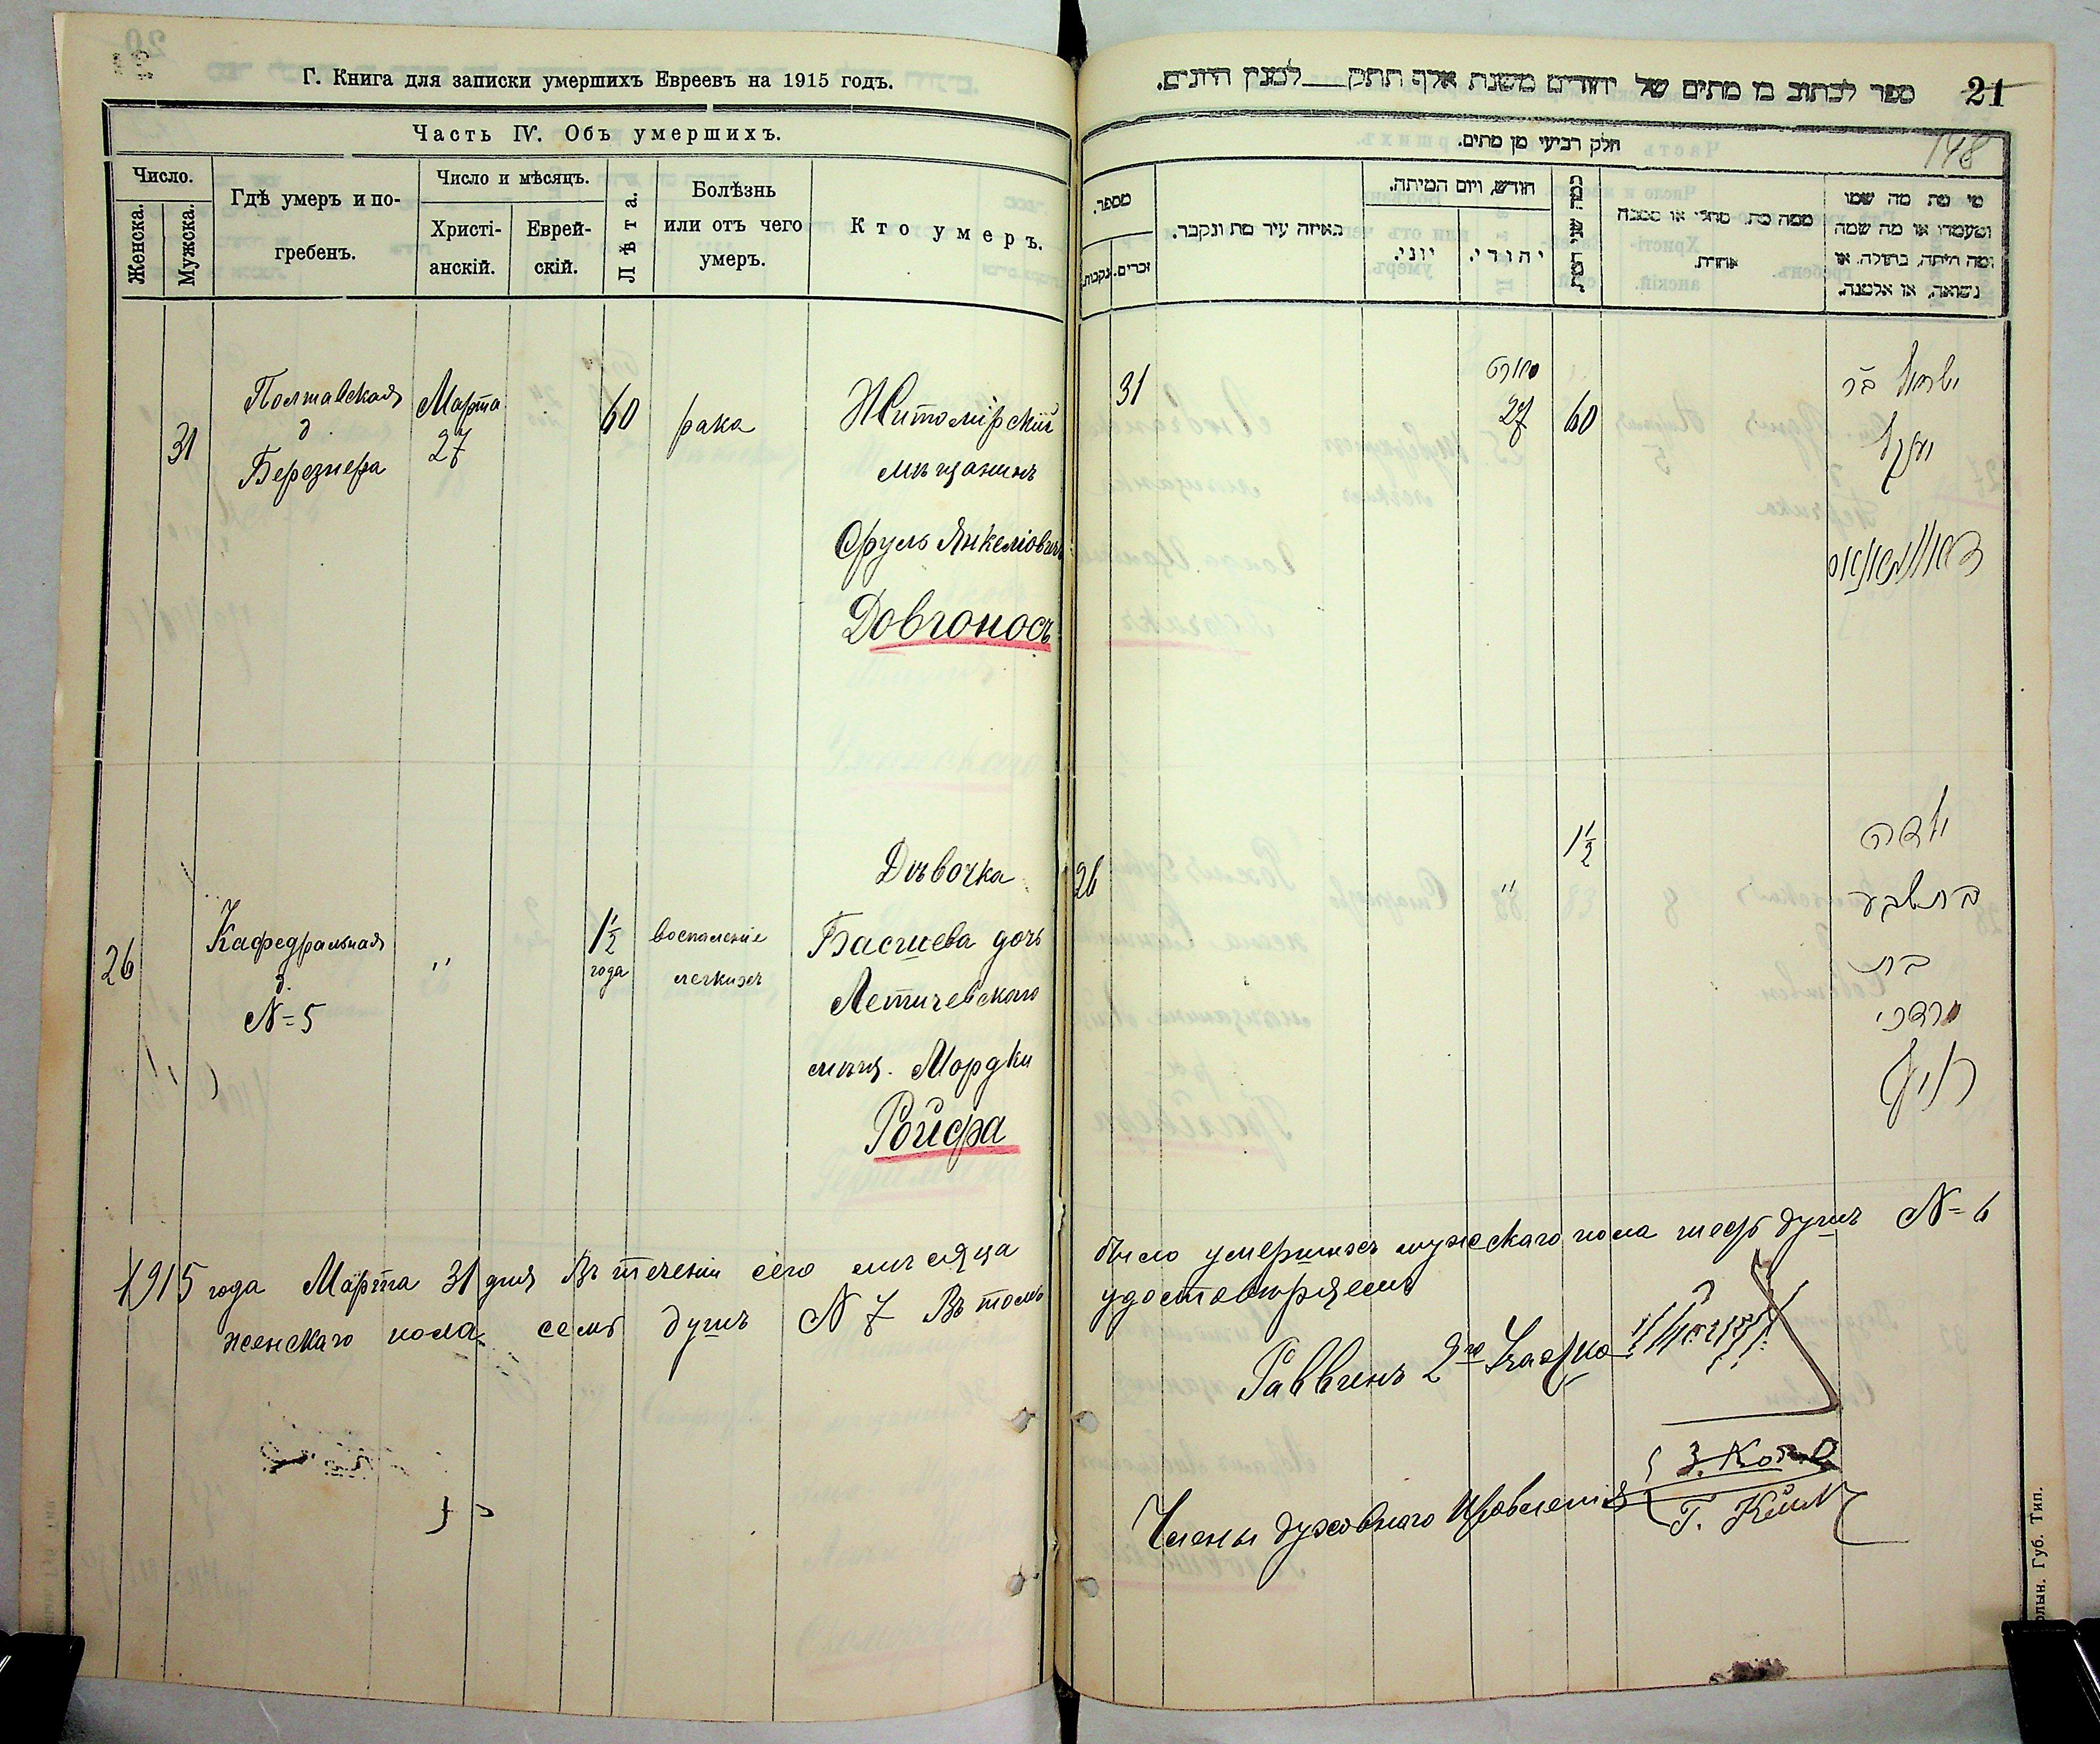 Г. Книга для записки умершихъ Евреевъ на 1915 годъ.
Часть IV. Объ умершихъ.
Число.
Женска.
Мужска.
Гдѣ умеръ и по-
гребенъ.
Число и мѣсяцъ.
Христі-
анскій.
Еврей-
скій.
Лѣта.
Болѣзнь
или отъ чего
умеръ.
Кто умеръ.
31
Полтавская
д
Березнера
Марта
27
60
рака
Житомірскій
мѣщанинъ
Сруль Янкеліовичъ
Довгоносъ
26
Кафедральная
д.
N=5
"
1 1/2
года
воспаленіе
легкихъ
Дѣвочка
Басшева дочь
Летичевскаго
мѣщ. Мордки
Ройфа
1915 года Марта 31 дня Въ теченіи сего мѣсяца
женскаго пола семь душъ N 7 Въ томъ
ספר לכתוב בו מתים של יהודים משנת אלף תתק___למנין היונים.
21
148
חלק רביעי מן מתים.
מספר.
זכרים.
נקבות.
באיזה עיר מת ונקבר.
חודש, ויום המיתה.
יוני.
יהודי.
כמה שני המת
ממה מת, מחלי או מסבה
אחרת.
מי מת מה שמו
ומעמדו או מה שמה
ומה היתה, בתולה, או
נשואה, או אלמנה.
31
מארט
27
60
ישראל בר
יענקל
26
"
1 1/2
ילדה
בת שבע
בת
מרדכי
רויף
было умершихъ мужскаго пола шесть душъ N=6
удостовѣряемъ
Раввинъ 2го Участка
Члены духовнаго Правленія